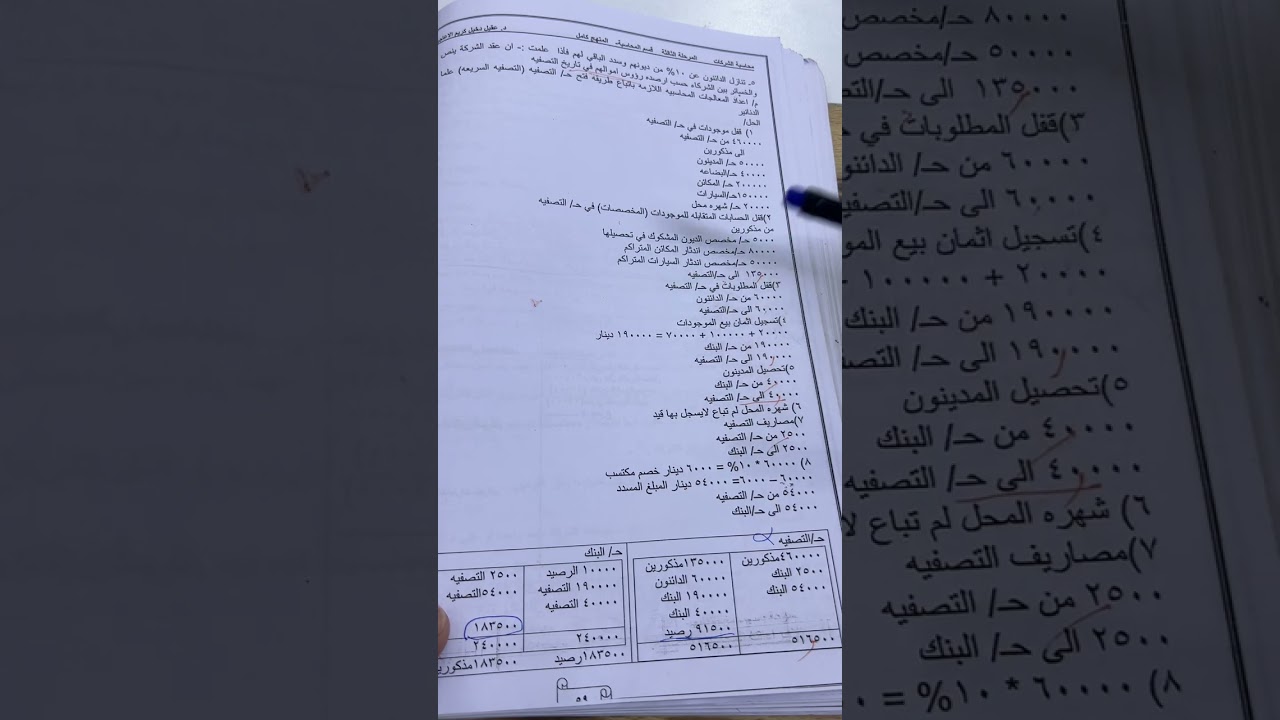 محاسبة الشركات المرحلة الثالثة قسم المحاسبة. المنهج كامل د. عقيل دخيل كريم
٥. تنازل الدائنون عن ١٠% من ديونهم وسدد الباقي لهم فأذا علمت :- ان عقد الشركة ينص
والخسائر بين الشركاء حسب ارصده رؤوس اموالهم في تاريخ التصفيه
م/ اعداد المعالجات المحاسبيه اللازمه باتباع طريقه فتح حـ/ التصفيه (التصفيه السريعه) علما
الدنانير
الحل/
١) قفل موجودات في حـ/ التصفيه
٤٦٠٠٠٠ من حـ/ التصفيه
الى مذكورين
٥٠٠٠٠ حـ/ المدينون
٤٠٠٠٠ حـ/البضاعه
٢٠٠٠٠٠ حـ/ المكائن
١٥٠٠٠٠حـ/السيارات
٢٠٠٠٠ حـ/ شهره محل
٢)قفل الحسابات المتقابله للموجودات (المخصصات) في حـ/ التصفيه
من مذكورين
٥٠٠٠ حـ/ مخصص الديون المشكوك في تحصيلها
٨٠٠٠٠ حـ/مخصص اندثار المكائن المتراكم
٥٠٠٠٠ حـ/مخصص اندثار السيارات المتراكم
١٣٥٠٠٠ الى حـ/التصفيه
٣)قفل المطلوبات في حـ/ التصفيه
٦٠٠٠٠ من حـ/ الدائنون
٦٠٠٠٠ الى حـ/التصفيه
٤)تسجيل اثمان بيع الموجودات
٢٠٠٠٠ + ١٠٠٠٠٠ + ٧٠٠٠٠ = ١٩٠٠٠٠ دينار
١٩٠٠٠٠ من حـ/ البنك
١٩٠٠٠٠ الى حـ/ التصفيه
٥)تحصيل المدينون
٤٠٠٠٠ من حـ/ البنك
٤٠٠٠٠ الى حـ/ التصفيه
٦) شهره المحل لم تباع لايسجل بها قيد
٧)مصاريف التصفيه
٢٥٠٠ من حـ/ التصفيه
٢٥٠٠ الى حـ/ البنك
٨) ٦٠٠٠٠ * ١٠% = ٦٠٠٠ دينار خصم مكتسب
٦٠٠٠٠ – ٦٠٠٠= ٥٤٠٠٠ دينار المبلغ المسدد
٥٤٠٠٠ من حـ/ التصفيه
٥٤٠٠٠ الى حـ/البنك
حـ/التصفيه
٤٦٠٠٠٠مذكورين ١٣٥٠٠٠مذكورين
٢٥٠٠ البنك ٦٠٠٠٠ الدائنون
٥٤٠٠٠ البنك ١٩٠٠٠٠ البنك
٤٠٠٠٠ البنك
٩١٥٠٠ رصيد
٥١٦٥٠٠ ٥١٦٥٠٠
حـ/ البنك
١٠٠٠٠ الرصيد ٢٥٠٠ التصفيه
١٩٠٠٠٠ التصفيه ٥٤٠٠٠التصفيه
٤٠٠٠٠ التصفيه
١٨٣٥٠٠
٢٤٠٠٠٠ ٢٤٠٠٠٠
١٨٣٥٠٠رصيد ١٨٣٥٠٠مذكورين
٨٠٠٠٠ حـ/مخصص
٥٠٠٠٠ حـ/مخصص
١٣٥٠٠٠ الى حـ/
٣)قفل المطلوبات في
٦٠٠٠٠ من حـ/ الدائنو
٦٠٠٠٠ الى حـ/التصفي
٤)تسجيل اثمان بيع المو
٢٠٠٠٠ + ١٠٠٠٠٠
١٩٠٠٠٠ من حـ/ البنك
١٩٠٠٠٠ الى حـ/ التص
٥)تحصيل المدينون
٤٠٠٠٠ من حـ/ البنك
٤٠٠٠٠ الى حـ/ التصفيه
٦) شهره المحل لم تباع لا
٧)مصاريف التصفيه
٢٥٠٠ من حـ/ التصفيه
٢٥٠٠ الى حـ/ البنك
٨) ٦٠٠٠٠ * ١٠% =